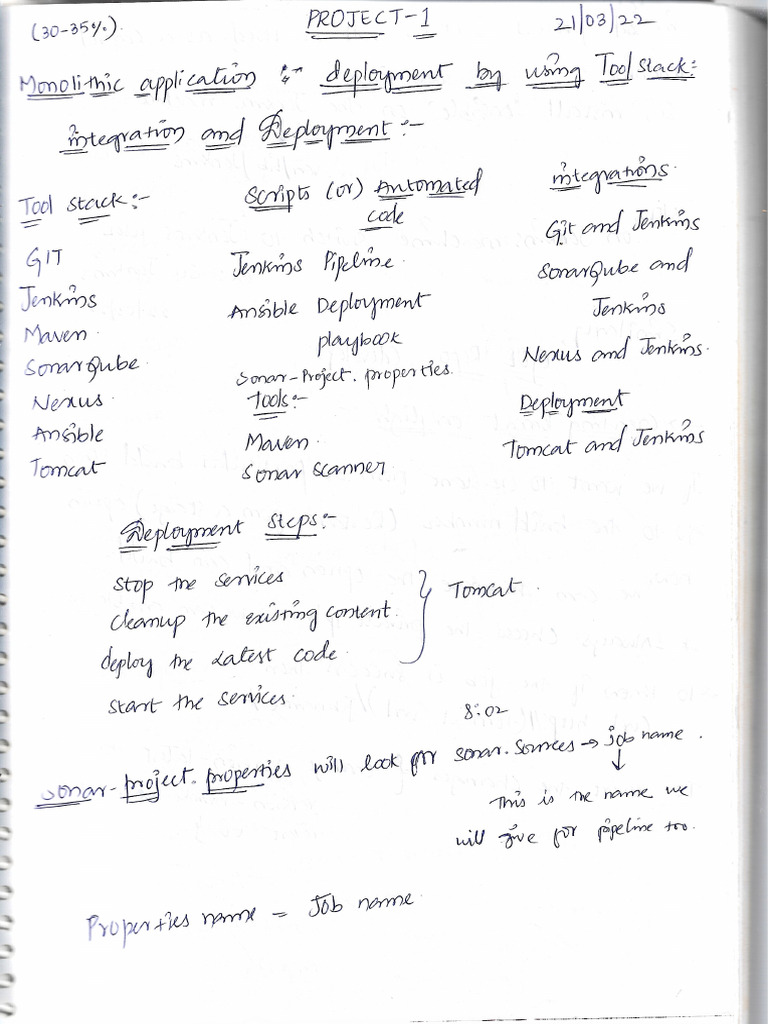 (30-35%).
PROJECT-1
21/03/22
Monolithic application :- deployment by using Tool Stack:
integration and Deployment:-
Tool Stack:-
GIT
Jenkins
Maven
SonarQube
Nexus
Ansible
Tomcat
Scripts (or) Automated
code
Jenkins Pipeline
Ansible Deployment
playbook
Sonar-Project.properties.
Tools:-
Maven
Sonar Scanner
integrations
Git and Jenkins
SonarQube and
Jenkins
Nexus and Jenkins.
Deployment
Tomcat and Jenkins
Deployment Steps:-
Stop the services
cleanup the existing content
deploy the Latest code
Start the services
} Tomcat
8:02
Sonar-project.properties will look for Sonar.Sources → job name.
↓
This is the name we
will give for pipeline too.
Properties name = Job name.